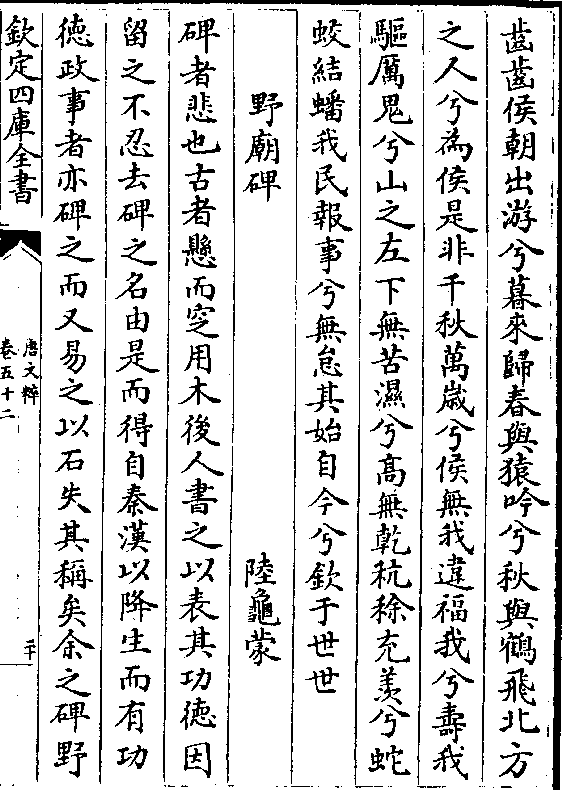 齒齒侯朝出游兮暮來歸春與猿吟兮秋與鶴飛北方
之人兮為侯是非千秋萬歲兮侯無我違福我兮壽我
驅厲鬼兮山之左下無苦濕兮髙無乾秔稌充羡兮蛇
蛟結蟠我民報事兮無怠其始自今兮欽于世世
野廟碑 陸龜蒙
碑者悲也古者懸而窆用木後人書之以表其功徳因
留之不忍去碑之名由是而得自秦漢以降生而有功
徳政事者亦碑之而又易之以石失其稱矣余之碑野
欽定四庫全書
唐文粹
卷五十二
二十